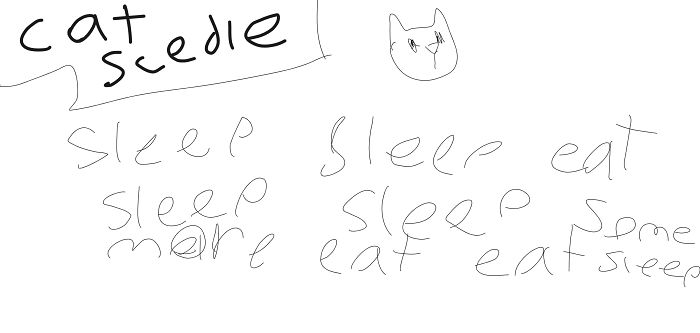 cat
scedle
sleep sleep eat
sleep sleep some
more eat eat sleep